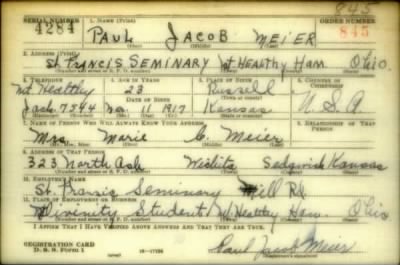 845
SERIAL NUMBER 1. NAME (Print) ORDER NUMBER
4284 PAUL JACOB MEIER 845
(First) (Middle) (Last)
2. ADDRESS (Print)
St. FRANCIS SEMINARY Mt HEALTHY Ham. Ohio
(Number and street or R. F. D. number) (Town) (County) (State)
3. TELEPHONE 4. AGE IN YEARS 5. PLACE OF BIRTH 6. COUNTRY OF CITIZENSHIP
Mt Healthy 23 Russell
DATE OF BIRTH (Town or county)
Jack 7344 Nov. 11 1917 Kansas U. S. A.
(Exchange) (Number) (Mo.) (Day) (Yr.) (State or country)
7. NAME OF PERSON WHO WILL ALWAYS KNOW YOUR ADDRESS 8. RELATIONSHIP OF THAT PERSON
Mrs. Marie C. Meier
(Mr., Mrs., Miss) (First) (Middle) (Last)
9. ADDRESS OF THAT PERSON
323 North Ash Wichita Sedgwick Kansas
(Number and street or R. F. D. number) (Town) (County) (State)
10. EMPLOYER'S NAME
St. Francis Seminary Mill Rd
11. PLACE OF EMPLOYMENT OR BUSINESS
Divinity Student Mt Healthy Ham. Ohio
(Number and street or R. F. D. number) (Town) (County) (State)
I AFFIRM THAT I HAVE VERIFIED ABOVE ANSWERS AND THAT THEY ARE TRUE.
REGISTRATION CARD
D. S. S. Form 1 Paul Jacob Meier